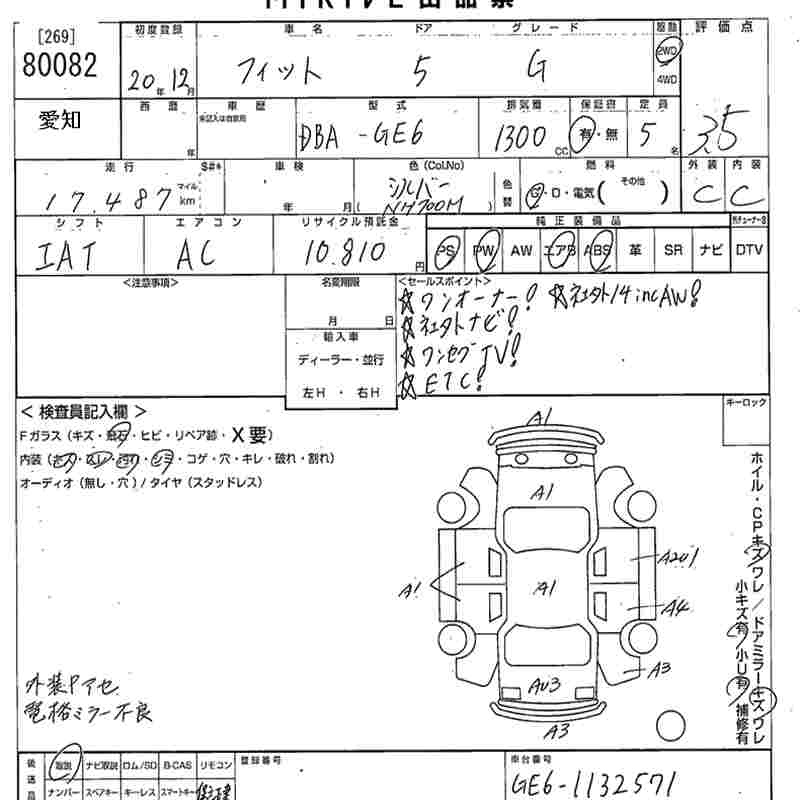 [269]
80082
初度登録 車名 ドア グレード 駆動 評価点
20年12月 フィット 5 G 2WD 4WD 3.5
愛知
西暦 車歴 型式 排気量 保証書 定員
未記入は自家用
年 DBA-GE6 1300CC 有・無 5名
走行 S#* 車検 色(Col.No) 燃料 外装 内装
17.487 マイル km 年 月 シルバー NH700M 色替 G・D・電気( その他 ) C C
シフト エアコン リサイクル預託金 純正装備品
IAT AC 10.810円 PS PW AW エアB ABS 革 SR ナビ DTV
<注意事項> 名変期限 <セールスポイント>
月 日
☆ワンオーナー! ☆社外14incAW!
☆社外ナビ!
☆ワンセグTV!
☆ETC!
輸入車
ディーラー・並行
左H・右H
<検査員記入欄>
キーロック
Fガラス(キズ・飛石・ヒビ・リペア跡・X要)
内装(キズ・スレ・汚れ・シミ・コゲ・穴・キレ・破れ・割れ)
オーディオ(無し・穴)/タイヤ(スタッドレス)
A1
A1
A1
A1
A2U1
A4
A3
AU3
A3
ホイル・CPキズワレ/ドアミラーキズワレ
小キズ有 小U有 補修有
外装Pアセ
電格ミラー不良
後送品 取説 ナビ取説 ロム/SD B-CAS リモコン 登録番号 車台番号
ナンバー スペアキー キーレス スマートキー
GE6-1132571